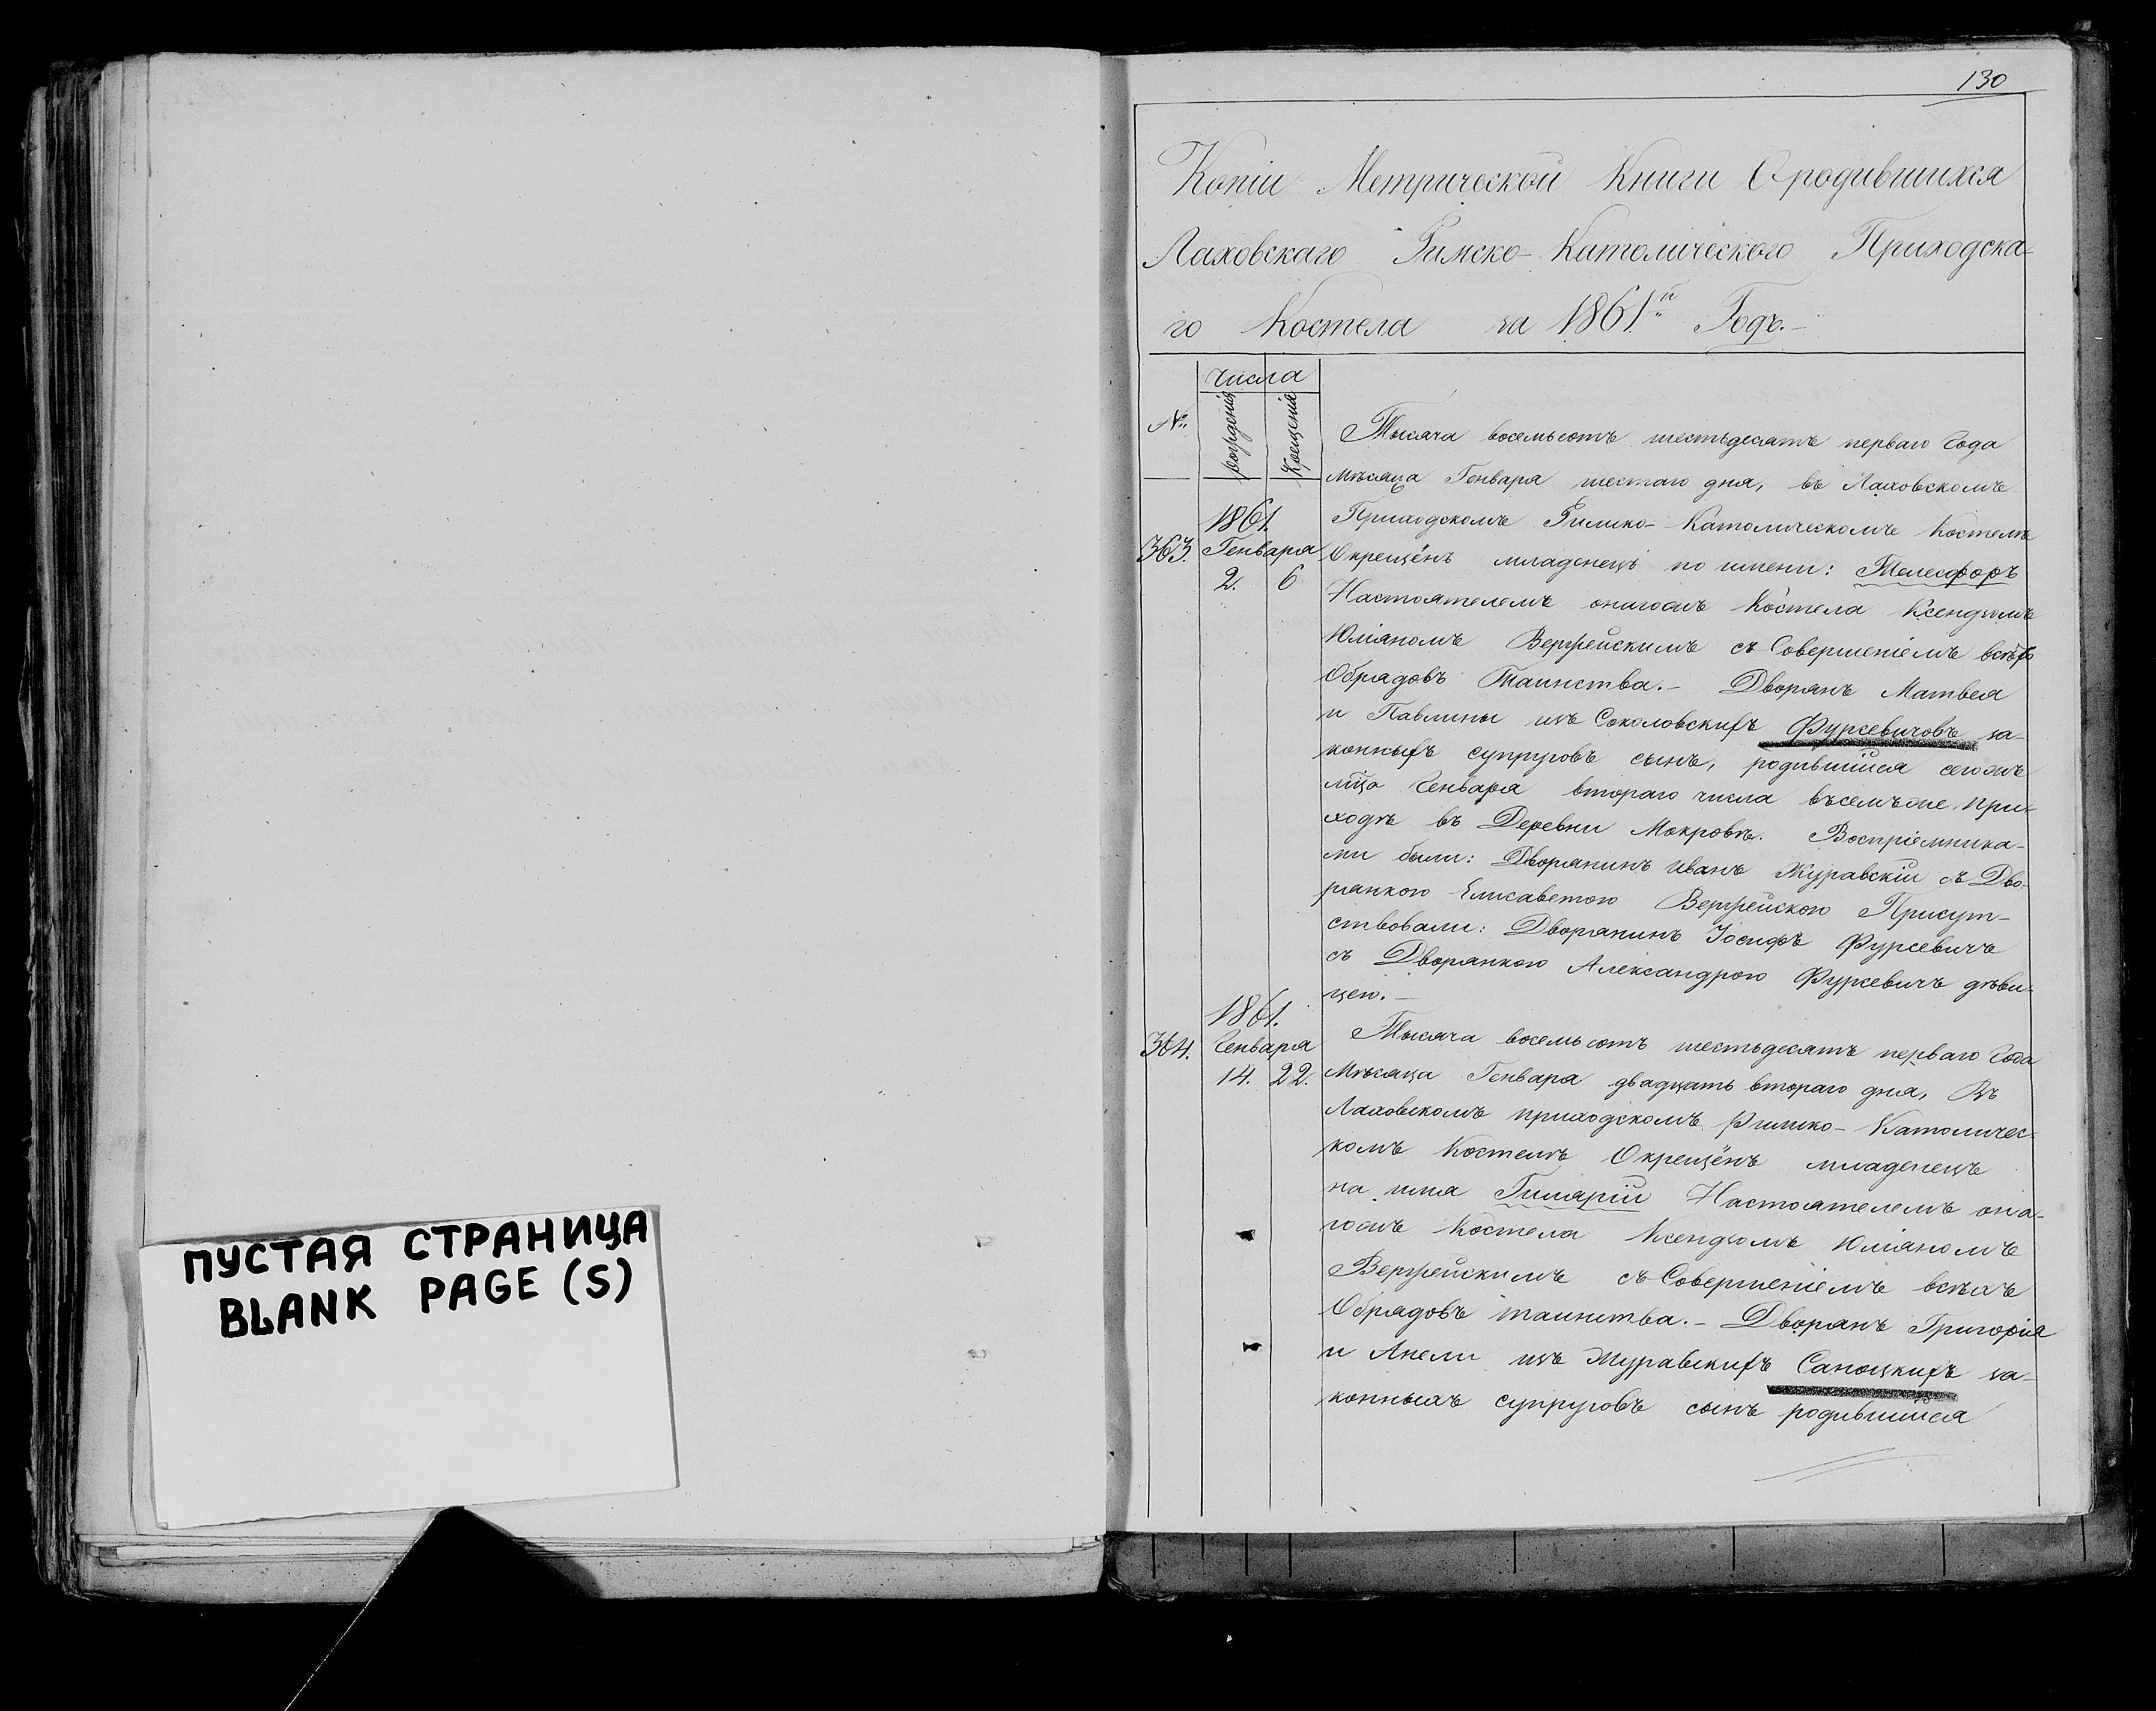 ПУСТАЯ СТРАНИЦА
BLANK PAGE (S)
130
Копіи Метрической Книги О родившихся
Лаховскаго Римско-Католическаго Приходска-
го Костела за 1861й Годъ.-
Числа
№
рожденія
Крещенія
Тысяча восемьсотъ шестьдесятъ перваго Года
мѣсяца Генваря шестаго дня, въ Лаховскомъ
1861.
Приходскомъ Римско-Католическомъ Костелѣ
363. Генваря
Окрещёнъ младенецъ по имени: Телесфоръ
2. 6
Настоятелемъ онагожъ Костела Ксендзомъ
Юліаномъ Вержейскимъ съ Совершеніемъ всѣхъ
Обрядовъ Таинства.- Дворянъ Матвея
и Павлины изъ Соколовскихъ Фурсевичовъ за-
конныхъ супруговъ сынъ, родившійся сегожъ
мца Генваря втораго числа въ семъ же При-
ходѣ въ Деревни Мокровѣ. Воспріемника-
ми были: Дворянинъ Иванъ Журавскій съ Дво-
рянкою Елисаветою Вержейскою Присут-
ствовали: Дворянинъ Іосифъ Фурсевичъ
съ Дворянкою Александрою Фурсевичъ дѣви-
цею.-
1861.
Тысяча восемьсотъ шестьдесятъ перваго Года
364. Генваря
14. 22.
Мѣсяца Генваря двадцать втораго дня, Въ
Лаховскомъ приходскомъ Римско-Католичес-
комъ Костелѣ Окрещёнъ младенецъ
на имя Гилярій Настоятелемъ она-
гожъ Костела Ксендзомъ Юліаномъ
Вержейскимъ съ Совершеніемъ всѣхъ
Обрядовъ таинства.- Дворянъ Григорія
и Анели изъ Журавскихъ Саноцкихъ за-
конныхъ супруговъ сынъ родившійся